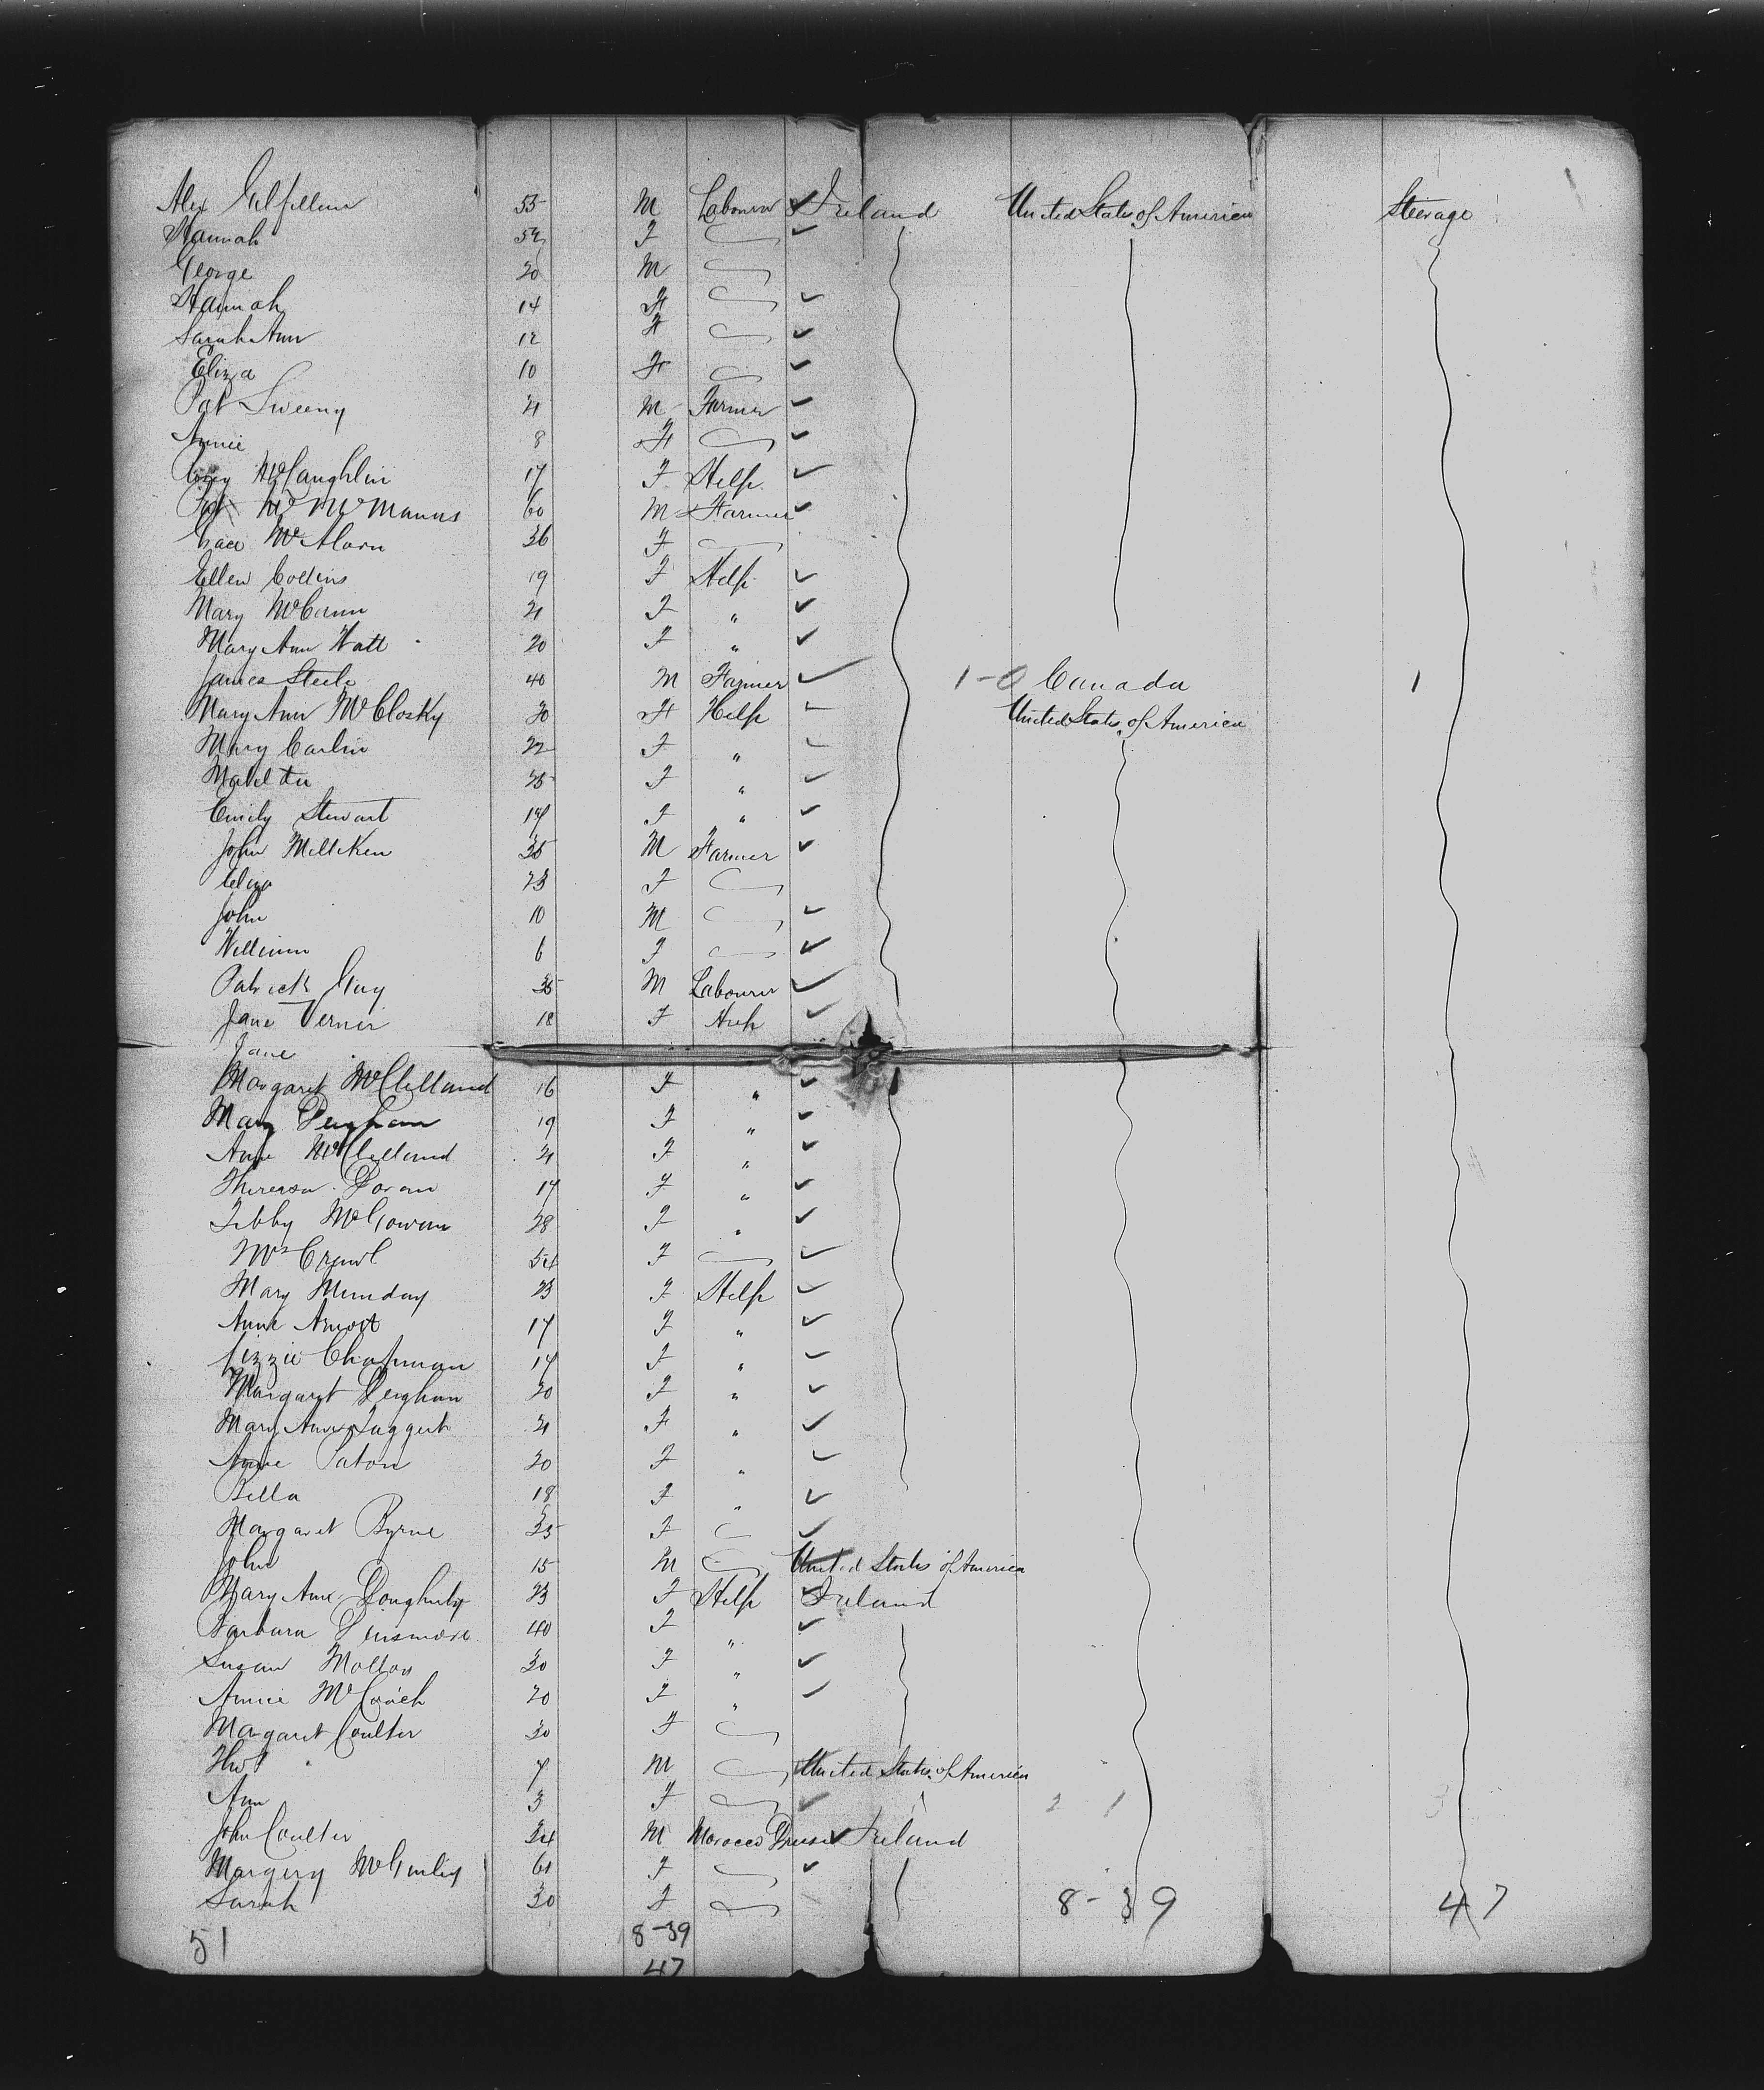 Alex Gilfillan 55 M Labourer Ireland United States of America Steerage
Hannah 52 F
George 20 M
Hannah 14 F
Sarah Ann 12 F
Eliza 10 F
Pat Sweeny 21 M Farmer
Annie 8 F
McLaughlin 17 F Help
Pat McManus 60 M Farmer
Grace McAlorn 36 F
Ellen Collins 19 F Help
Mary McCann 21 F "
Mary Ann Watt 20 F "
James Steele 40 M Farmer 1-0 Canada 1
Mary Ann McClosky 30 F Help United States of America
Mary Carlin 22 F "
Matilda 25 F "
Emily Stewart 17 F "
John Milliken 35 M Farmer
Eliza 23 F
John 10 M
William 6 F
Patrick Guy 35 M Labourer
Jane Verner 18 F Help
Jane
Margaret McClelland 16 F "
Mary Deighan 19 F "
Anne McClelland 21 F "
Theresa Doran 17 F "
Tibby McGowan 28 F "
Mrs 54 F
Mary Munday 23 F Help
Anne 17 F "
Lizzie Chapman 17 F "
Margaret Deighan 20 F "
Mary Anne Taggert 21 F "
Anne Paton 20 F "
Bella 18 F "
Margaret Byrne 35 F
John 15 M United States of America
Mary Ann Dougherty 23 F Help Ireland
Barbara Dinsmore 40 F "
Susan Molloy 30 F "
Annie 20 F "
Margaret Coulter 30 F
7 M United States of America
Ann 3 F 2 1 3
John Coulter 34 M Morocco Ireland
Margery McGinley 61 F
Sarah 30 F 8-39 47
51 8-39
47